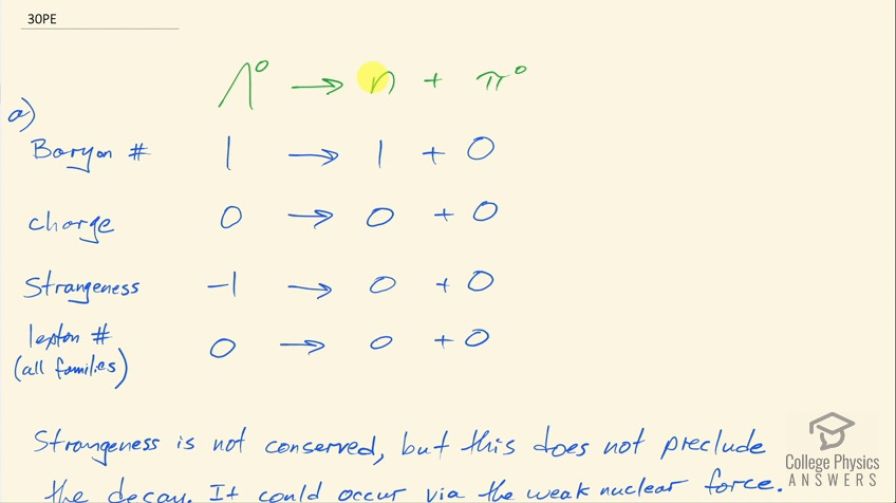 30PE
Λ⁰ → n + π⁰
a)
Baryon # 1 → 1 + 0
charge 0 → 0 + 0
Strangeness -1 → 0 + 0
lepton # 0 → 0 + 0
(all families)
Strangeness is not conserved, but this does not preclude
the decay. It could occur via the weak nuclear force.
College Physics
ANSWERS